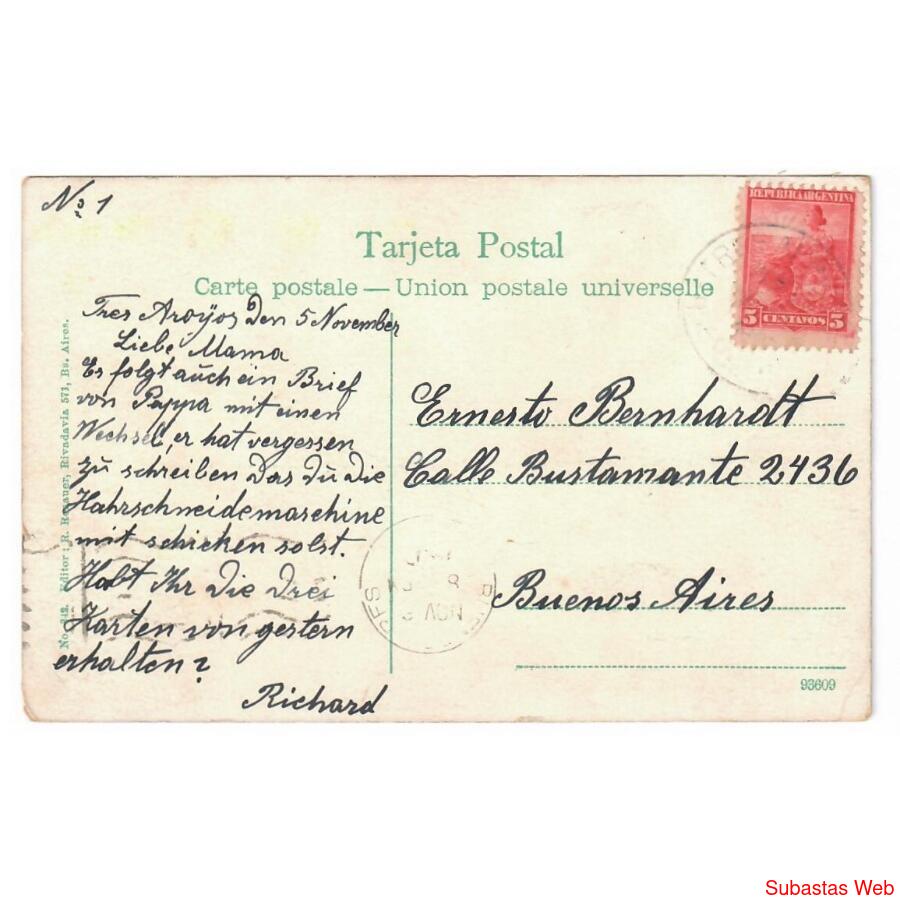 No 1
REPUBLICA ARGENTINA
5 CENTAVOS 5
Tarjeta Postal
Carte postale — Union postale universelle
Tres Aroÿos den 5 November
Liebe Mama
Es folgt auch ein Brief
von Pappa mit einen
Wechsel, er hat vergessen
zu schreiben das du die
Hahrschneidemaschine
mit schicken solst.
Habt Ihr die drei
Karten von gestern
erhalten?
Richard
Ernesto Bernhardt
Calle Bustamante 2436
Buenos Aires
93609
Editor: R. Rosauer, Rivadavia 571, Bs. Aires.
NOV
8
Subastas Web